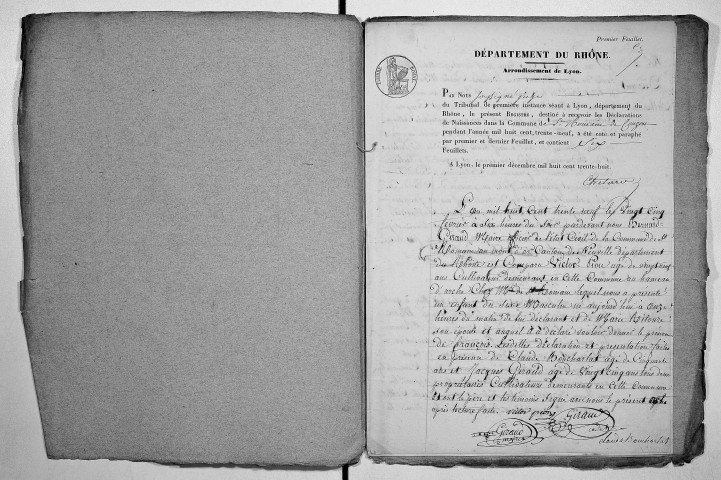 Premier Feuillet.
DÉPARTEMENT DU RHÔNE.
Arrondissement de Lyon.
PAR NOUS
du Tribunal de première instance séant à Lyon, département du
Rhône, le présent REGISTRE, destiné à recevoir les Déclarations
de Naissances dans la Commune de St Romain de Couzon
pendant l'année mil huit cent trente-neuf, a été coté et paraphé
par premier et dernier Feuillet, et contient Six
Feuillets.
A Lyon, le premier décembre mil huit cent trente-huit.
L'an mil huit Cent trente neuf le Vingt Cinq
fevrier à Six heures du Soir pardevant nous Bernard
Giraud Maire officier de l'état Civil de la Commune de St
Romain au mont d'or Canton de Neuville département
du Rhône est Comparu Victor age de vingt neuf
ans Cultivateur demeurant en cette Commune au hameau
Chez Mme de Romain lequel nous a présenté
un enfant du Sexe Masculin né aujourd'hui à onze
heures du matin de lui déclarant et de Marie
Son épouse et auquel il a déclaré vouloir donner le prénom
de François. Lesdittes déclaration et présentation faites
en présence de Claude Boucharlat age de Cinquante
ans et Jacques Giraud age de Vingt Cinq ans tous deux
propriétaires Cultivateurs demeurants en Cette Commune
et ont le père et les témoins Signé avec nous le présent acte
après lecture faite. victor
Giraud
Giraud
maire